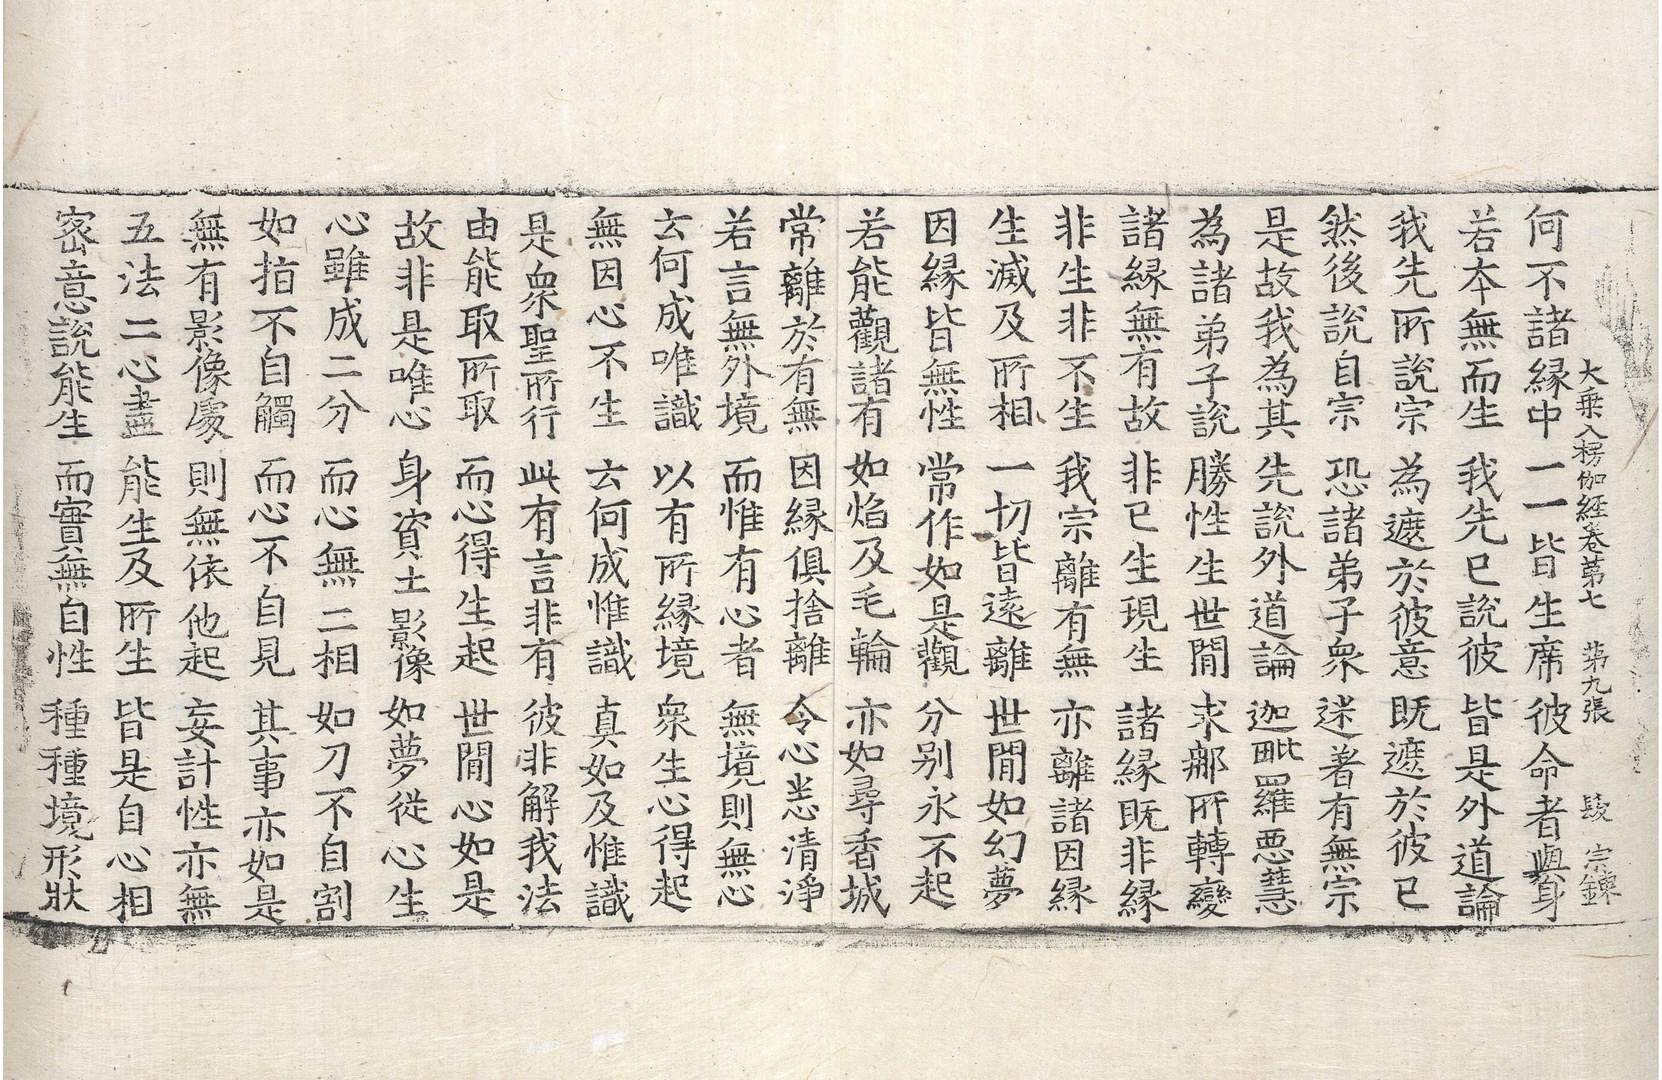 大乗入楞伽経卷第七 第九張 陵 宗鍊
何不諸縁中 一一皆生席 彼命者與身
若本無而生 我先已說彼 皆是外道論
我先所說宗 為遮於彼意 既遮於彼已
然後說自宗 恐諸弟子衆 迷著有無宗
是故我為其 先說外道論 迦毗羅惡慧
為諸弟子說 勝性生世間 求那所轉變
諸縁無有故 非已生現生 諸縁既非縁
非生非不生 我宗離有無 亦離諸因縁
生滅及所相 一切皆遠離 世間如幻夢
因縁皆無性 常作如是觀 分別永不起
若能觀諸有 如焰及毛輪 亦如尋香城
常離於有無 因縁俱捨離 令心悉清淨
若言無外境 而惟有心者 無境則無心
云何成唯識 以有所縁境 衆生心得起
無因心不生 云何成惟識 真如及惟識
是衆聖所行 此有言非有 彼非解我法
由能取所取 而心得生起 世間心如是
故非是唯心 身資土影像 如夢從心生
心雖成二分 而心無二相 如刀不自割
如指不自觸 而心不自見 其事亦如是
無有影像處 則無依他起 妄計性亦無
五法二心盡 能生及所生 皆是自心相
密意說能生 而實無自性 種種境形狀